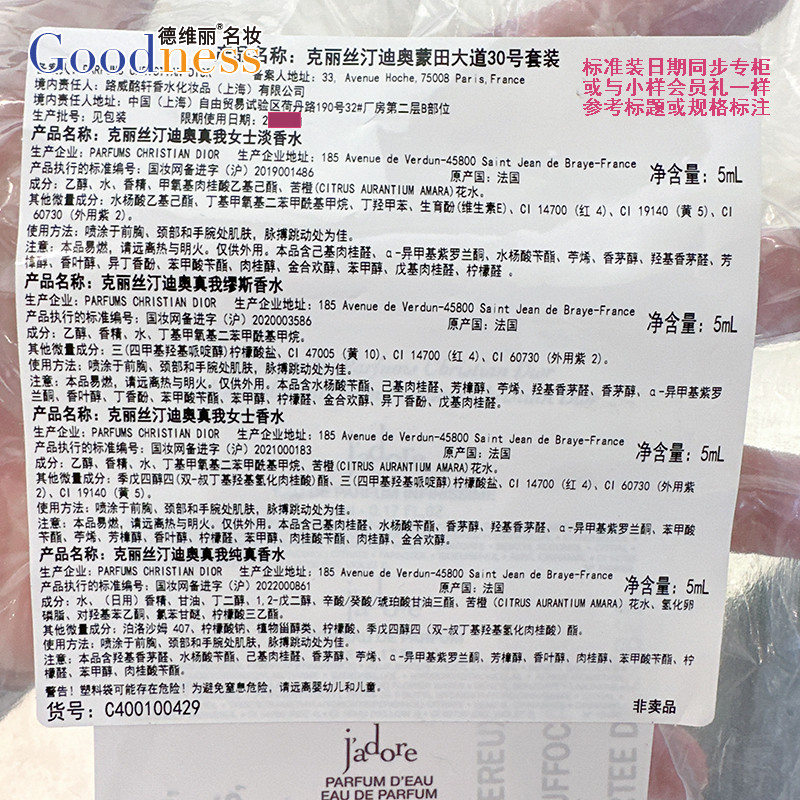 德维丽®名妆
Goodness
产品名称：克丽丝汀迪奥蒙田大道30号套装
标准装日期同步专柜
或与小样会员礼一样
参考标题或规格标注
备案人地址：33, Avenue Hoche, 75008 Paris, France
境内责任人：路威酩轩香水化妆品（上海）有限公司
境内责任人地址：中国（上海）自由贸易试验区荷丹路190号32#厂房第二层B部位
生产批号：见包装 限期使用日期：2
产品名称：克丽丝汀迪奥真我女士淡香水
生产企业：PARFUMS CHRISTIAN DIOR 生产企业地址：185 Avenue de Verdun-45800 Saint Jean de Braye-France
产品执行的标准编号：国妆网备进字（沪）2019001486 原产国：法国 净含量：5mL
成分：乙醇、水、香精、甲氧基肉桂酸乙基己酯、苦橙(CITRUS AURANTIUM AMARA)花水。
其他微量成分：水杨酸乙基己酯、丁基甲氧基二苯甲酰基甲烷、丁羟甲苯、生育酚(维生素E)、CI 14700 (红 4)、CI 19140 (黄 5)、CI
60730 (外用紫 2)。
使用方法：喷涂于前胸、颈部和手腕处肌肤，脉搏跳动处为佳。
注意：本品易燃，请远离热与明火。仅供外用。本品含己基肉桂醛、α-异甲基紫罗兰酮、水杨酸苄酯、苧烯、香茅醇、羟基香茅醛、芳
樟醇、香叶醇、异丁香酚、苯甲酸苄酯、肉桂醇、金合欢醇、苯甲醇、戊基肉桂醛、柠檬醛 。
产品名称：克丽丝汀迪奥真我缪斯香水
生产企业：PARFUMS CHRISTIAN DIOR 生产企业地址：185 Avenue de Verdun-45800 Saint Jean de Braye-France
产品执行的标准编号：国妆网备进字（沪）2020003586 原产国：法国 净含量：5mL
成分：乙醇、香精、水、丁基甲氧基二苯甲酰基甲烷。
其他微量成分：三(四甲基羟基哌啶醇)柠檬酸盐、CI 47005 (黄 10)、CI 14700 (红 4)、CI 60730 (外用紫 2)。
使用方法：喷涂于前胸、颈部和手腕处肌肤，脉搏跳动处为佳。
注意：本品易燃，请远离热与明火。仅供外用。本品含水杨酸苄酯、己基肉桂醛、芳樟醇、苧烯、羟基香茅醛、香茅醇、α-异甲基紫罗
兰酮、香叶醇、丁香酚、苯甲酸苄酯、苯甲醇、柠檬醛、金合欢醇、异丁香酚、戊基肉桂醛。
产品名称：克丽丝汀迪奥真我女士香水
生产企业：PARFUMS CHRISTIAN DIOR 生产企业地址：185 Avenue de Verdun-45800 Saint Jean de Braye-France
产品执行的标准编号：国妆网备进字（沪）2021000183 原产国：法国 净含量：5mL
成分：乙醇、香精、水、丁基甲氧基二苯甲酰基甲烷、苦橙(CITRUS AURANTIUM AMARA)花水。
其他微量成分：季戊四醇四(双-叔丁基羟基氢化肉桂酸)酯、三(四甲基羟基哌啶醇)柠檬酸盐、CI 14700 (红 4)、CI 60730 (外用紫
2)、CI 19140 (黄 5)。
使用方法：喷涂于前胸、颈部和手腕处肌肤，脉搏跳动处为佳。
注意：本品易燃，请远离热与明火。仅供外用。本品含己基肉桂醛、水杨酸苄酯、香茅醇、羟基香茅醛、α-异甲基紫罗兰酮、苯甲酸
苄酯、苧烯、芳樟醇、香叶醇、柠檬醛、苯甲醇、肉桂酸苄酯、肉桂醇、金合欢醇。
产品名称：克丽丝汀迪奥真我纯真香水
生产企业：PARFUMS CHRISTIAN DIOR 生产企业地址：185 Avenue de Verdun-45800 Saint Jean de Braye-France
产品执行的标准编号：国妆网备进字（沪）2022000861 原产国：法国 净含量：5mL
成分：水、（日用）香精、甘油、丁二醇、1,2-戊二醇、辛酸/癸酸/琥珀酸甘油三酯、苦橙（CITRUS AURANTIUM AMARA）花水、氢化卵
磷脂、对羟基苯乙酮、氯苯甘醚、柠檬酸三乙酯。
其他微量成分：泊洛沙姆 407、柠檬酸钠、植物甾醇类、柠檬酸、季戊四醇四（双-叔丁基羟基氢化肉桂酸）酯。
使用方法：喷涂于前胸、颈部和手腕处肌肤，脉搏跳动处为佳。
注意：本品含羟基香茅醛、水杨酸苄酯、己基肉桂醛、香茅醇、苧烯、α-异甲基紫罗兰酮、芳樟醇、香叶醇、肉桂醇、苯甲酸苄酯、柠
檬醛、苯甲醇、肉桂酸苄酯。
警告！塑料袋可能存在危险！为避免窒息危险，请远离婴幼儿和儿童。
货号：C400100429 非卖品
j'adore
PARFUM D'EAU
EAU DE PARFUM